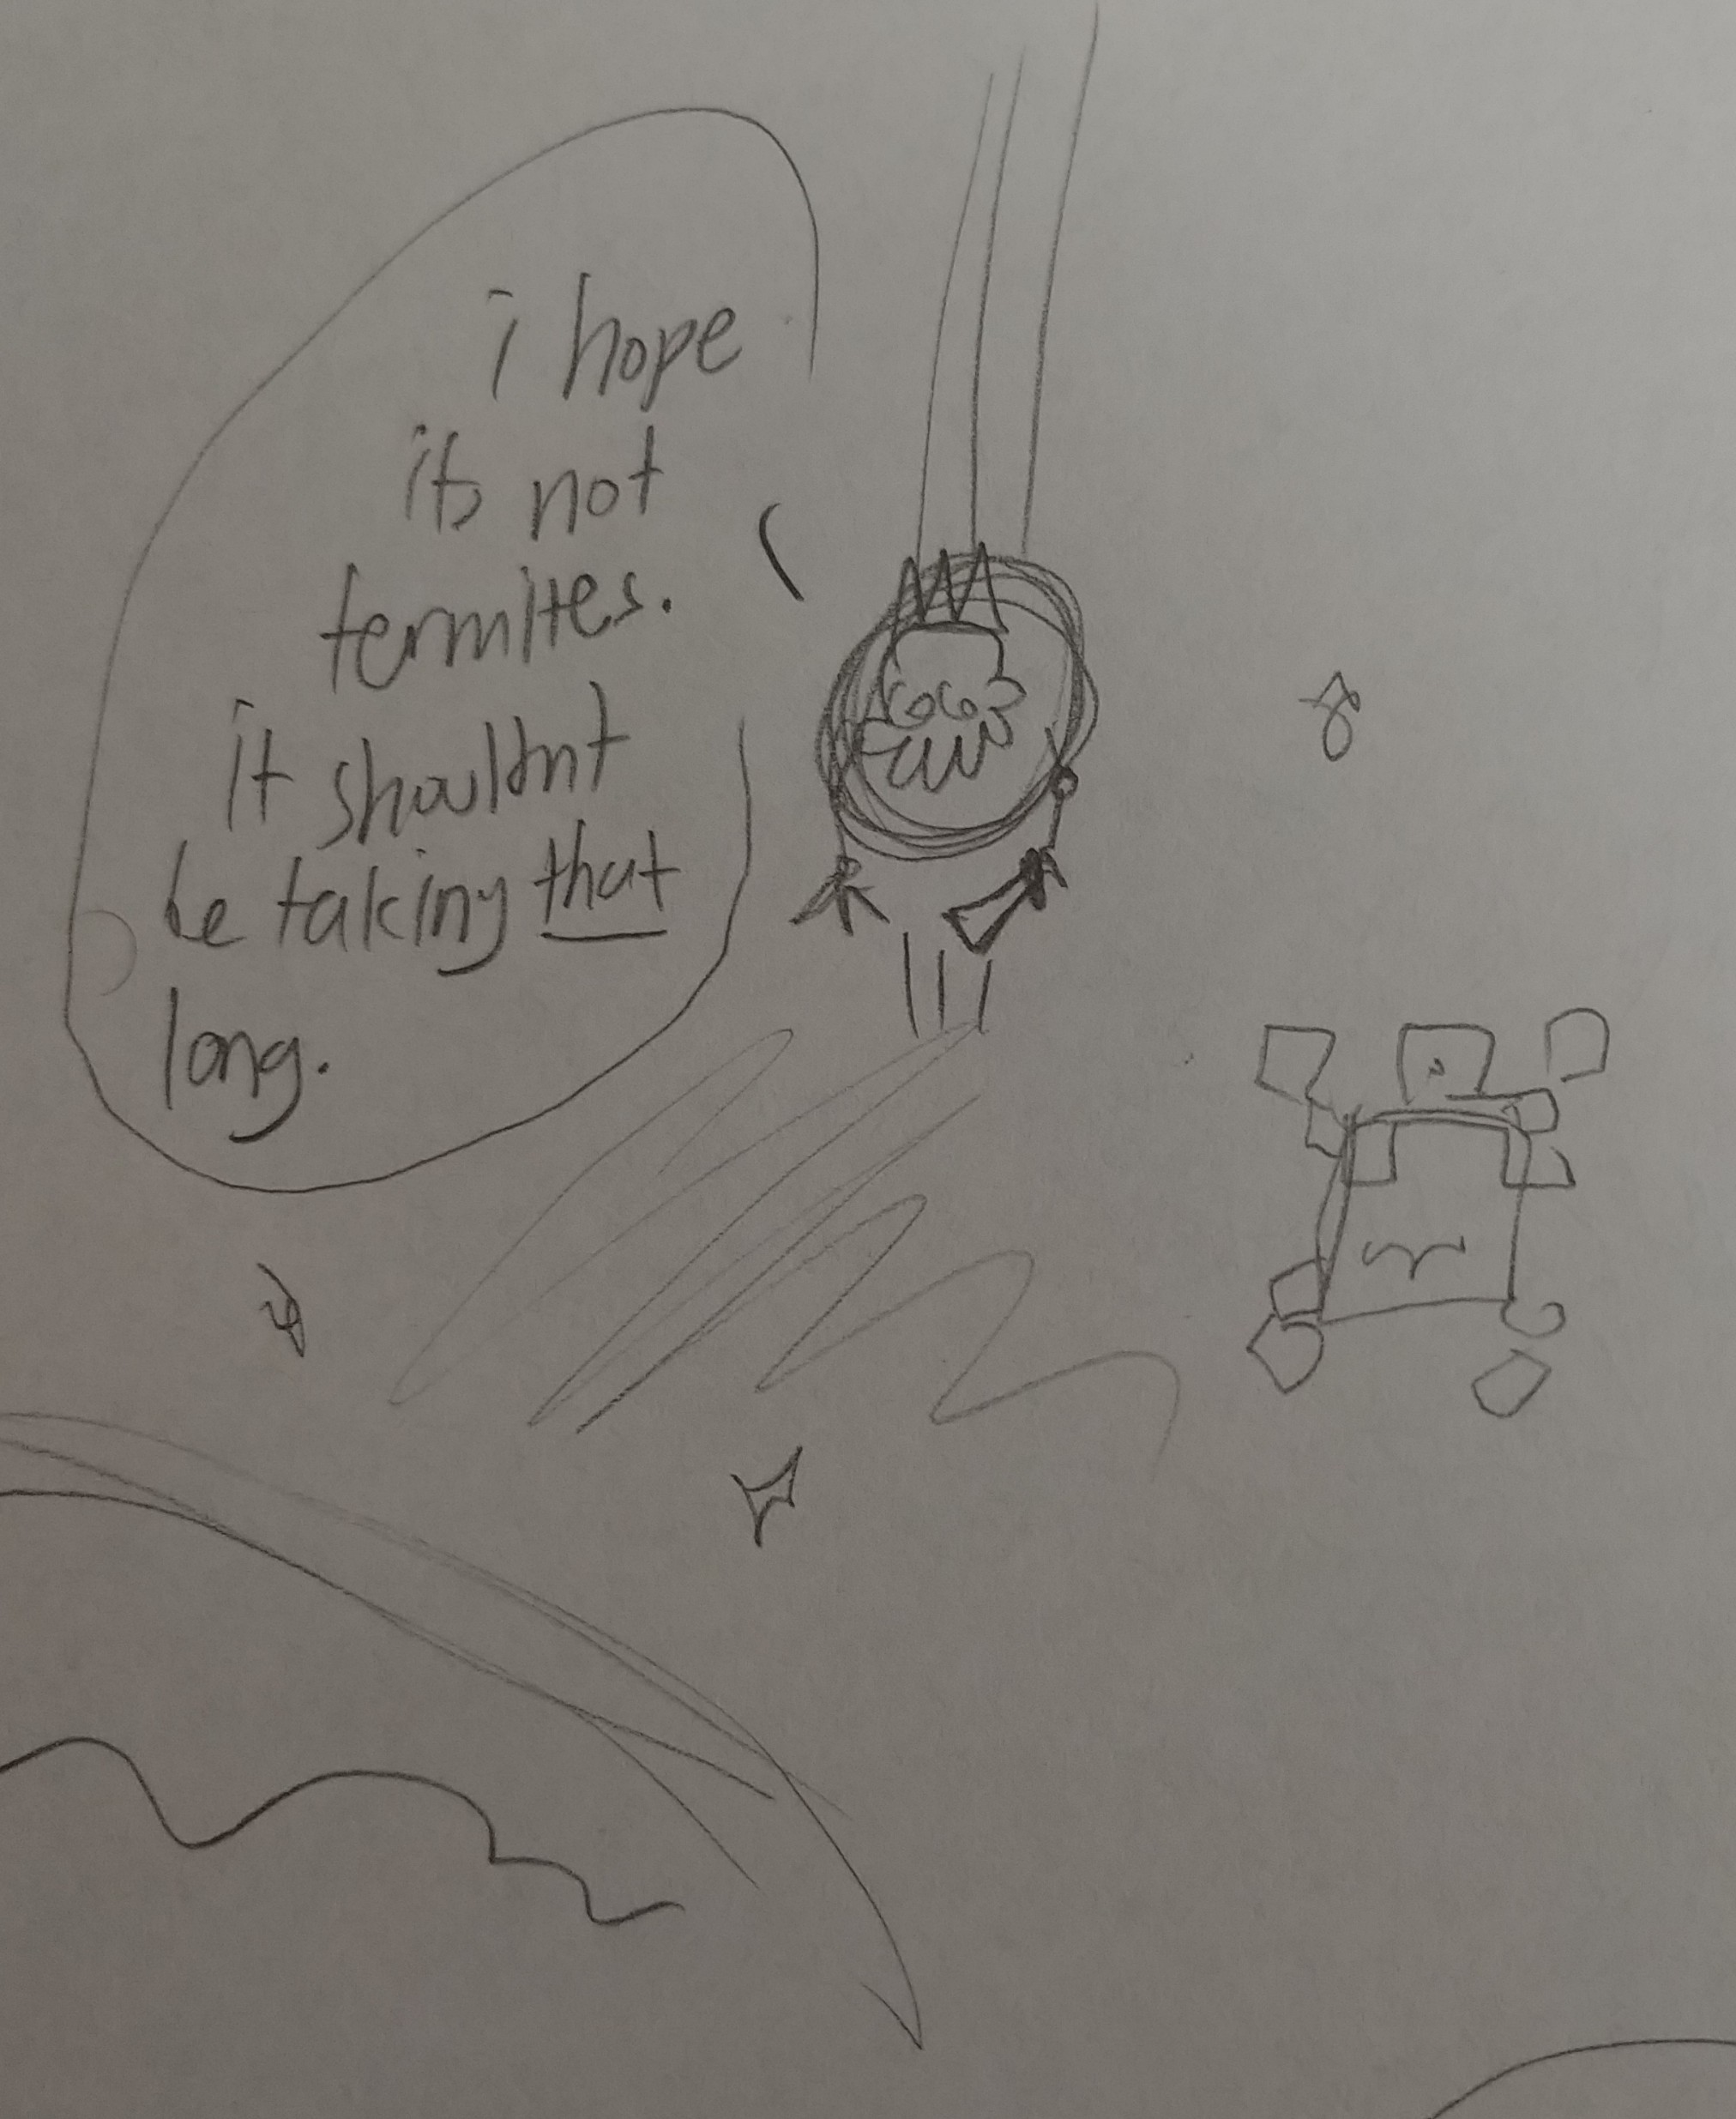 i hope
its not
termites.
it shouldnt
be taking that
long.